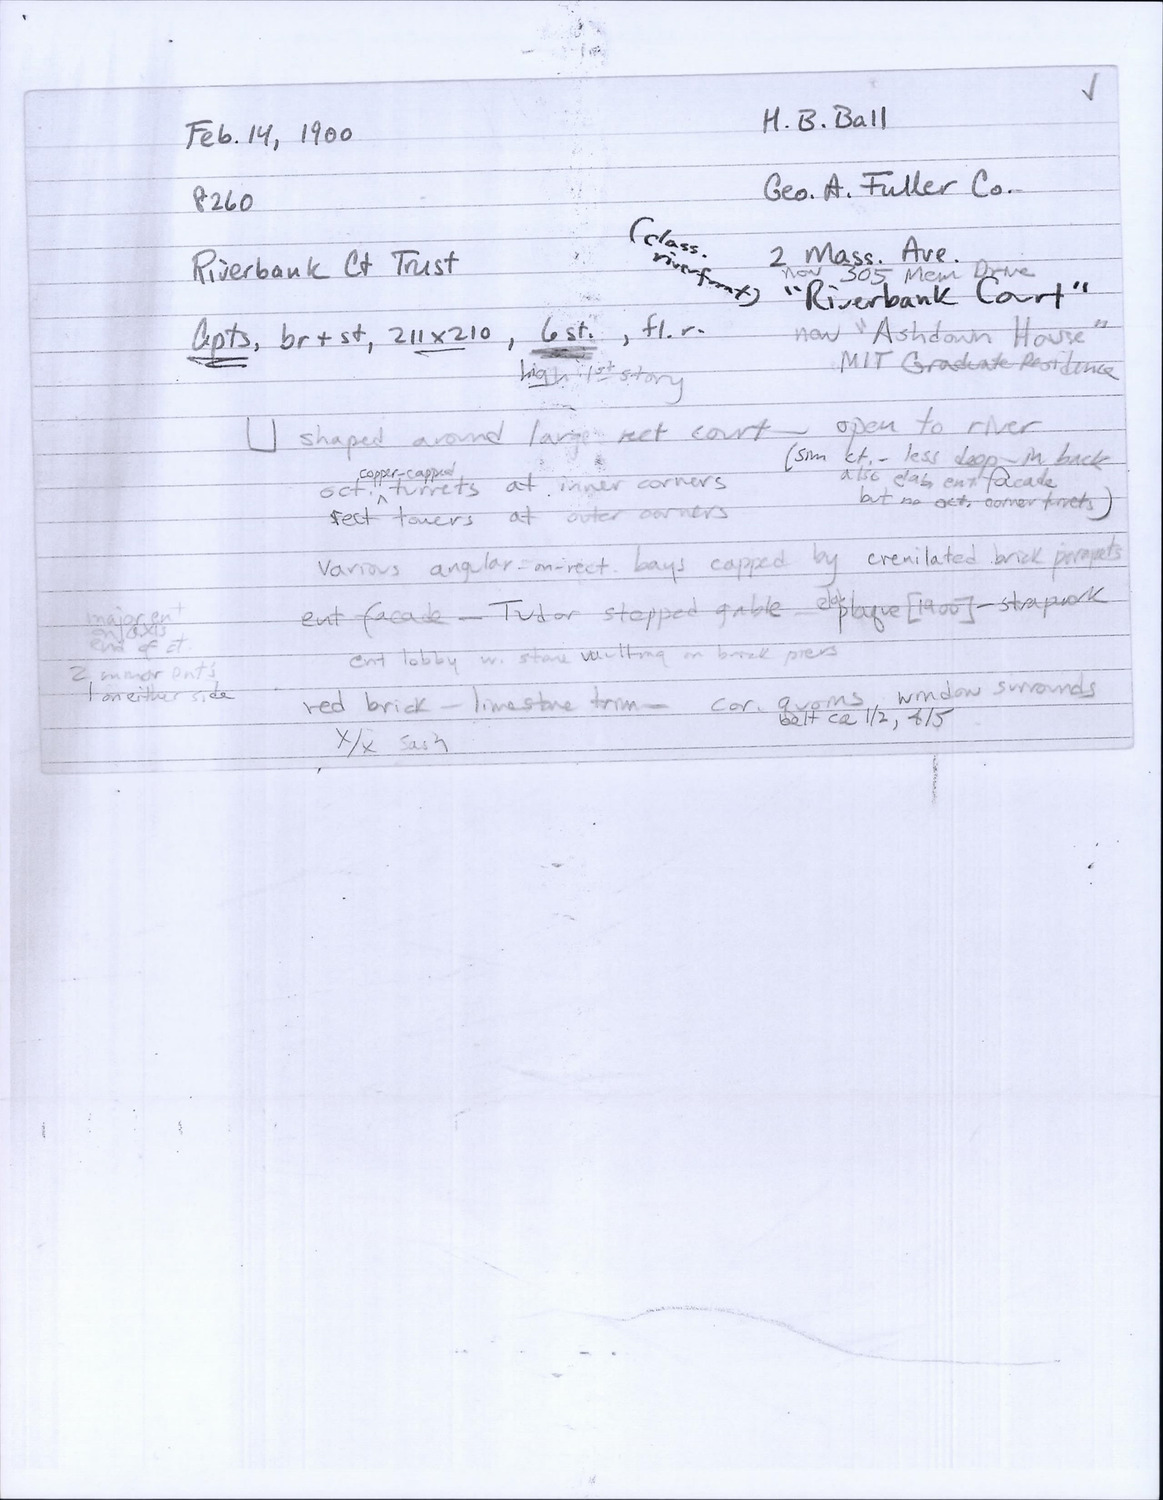 Feb. 14, 1900
H. B. Ball
8260
Geo. A. Fuller Co.
Riverbank Ct Trust
(class. riverfront)
2 Mass. Ave.
now 305 Mem Drive
"Riverbank Court"
Apts, br + st, 211 x 210, 6 st., fl. r.
now "Ashdown House"
high 1st story
MIT Graduate Residence
shaped around large rect court — open to river
(sim ct. - less deep - in back
copper-capped
oct. turrets at inner corners
also elab ent facade
but no oct. corner turrets)
rect towers at outer corners
Various angular-on-rect. bays capped by crenilated brick parapets
major ent
on axis
end of ct.
ent facade — Tudor stepped gable elab plaque [1900] - strapwork
ent lobby w. stone vaulting on brick piers
2 minor ent's
1 on either side
red brick — limestone trim — cor. quoins, window surrounds
belt ca 1/2, 4/5
x/x sash